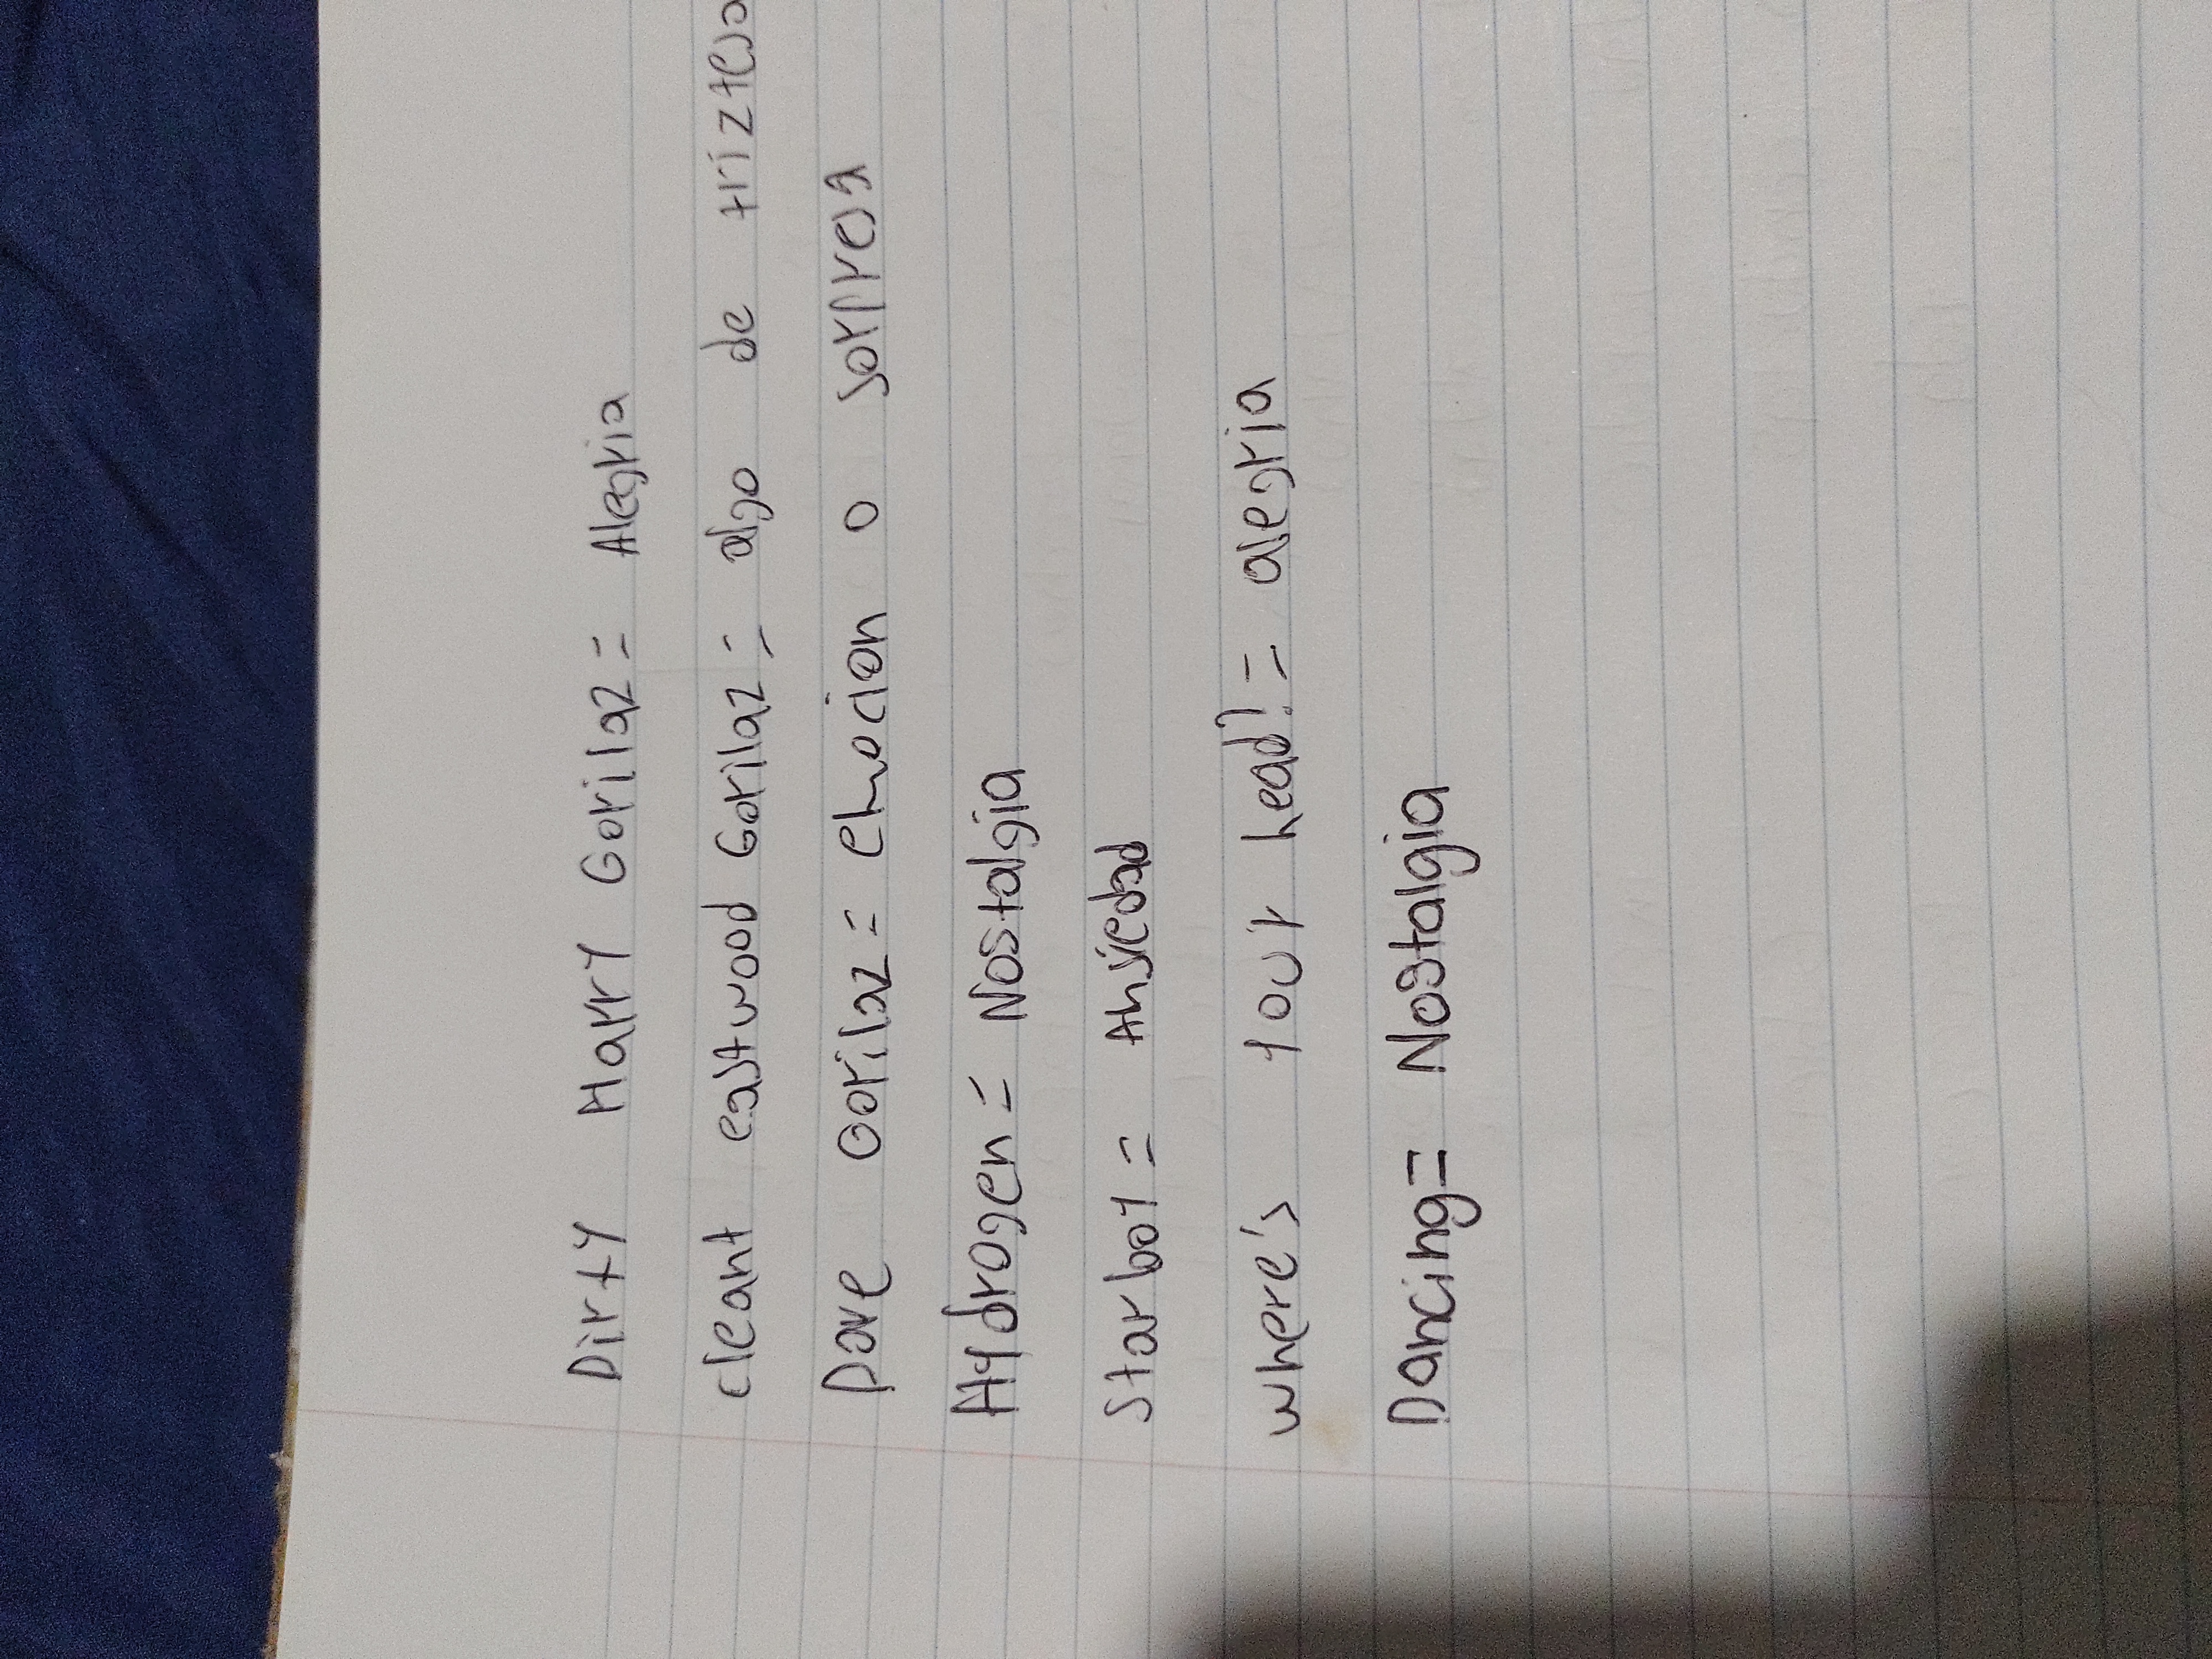 Dirty Harry Gorilaz= Alegria
cleant eastwood Gorilaz= algo de trizteza
Dare Gorilaz= emocion o sorpresa
Hydrogen= Nostalgia
Starboy= Ansiedad
where's your head?= alegria
Dancing= Nostalgia